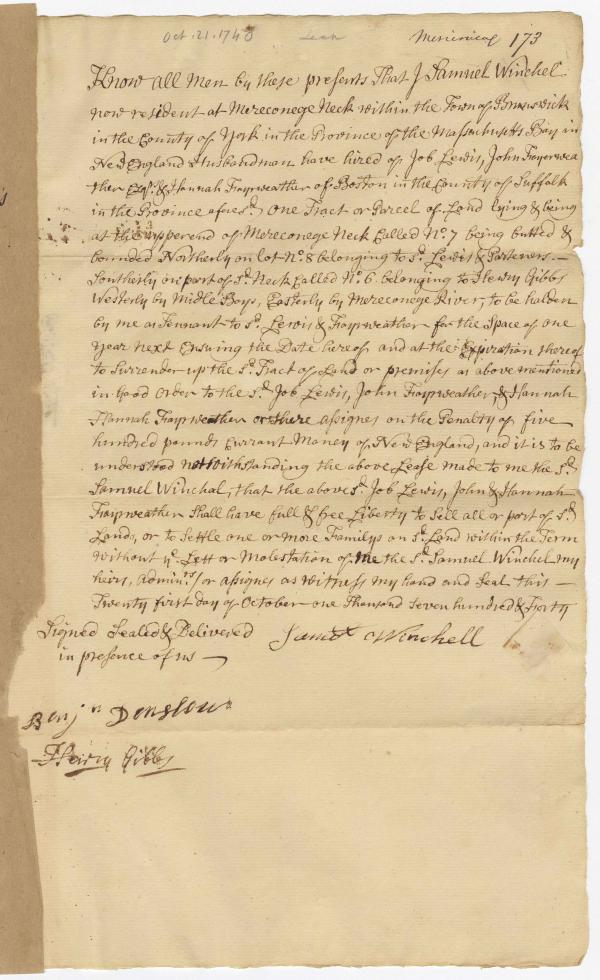 Oct. 21. 1740 Lease Mericoneag 173
Know all Men by these presents That I Samuel Winchel
now resident at Mereconege Neck within the Town of Brunswick
in the County of York in the Province of the Massachusetts Bay in
New England Husbandman have hired of Job Lewis, John Fayerwea
ther Esqr. & Hannah Fayrweather of Boston in the County of Suffolk
in the Province afores.d One Tract or Parcel of Land lying & being
at the upper end of Mereconege Neck Called No. 7 being butted &
bounded Northerly on lot No. 8 belonging to s.d Lewis & Parteners. —
Southerly on part of s.d Neck Called No. 6 belonging to Henry Gibbs
Westerly by Midle Bays, Easterly by Mereconege River, to be halden
by me as Tennant to s.d Lewis & Fayrweather for the Space of one
year next Ensuring the Date hereof and at the Expiration thereof
to Surrander up the s.d Tract of Land or premises as above mentioned
in Good Order to the s.d Job Lewis, John Fayrweather, & Hannah
Hannah Fayrweather or there assignes on the Penalty of five
hundred pounds Currant Money of New England, and it is to be
understood notwithstanding the above Lease made to me the s.d
Samuel Winchal, that the above s.d Job Lewis, John & Hannah
Fayrweather Shall have full & free Liberty to Sell all or part of s.d
Land, or to Settle one or more Familys on s.d Land within the Term
without y.e Lett or Molestation of me the s.d Samuel Winchel my
heirs, Admin.rs or assignes as witness my hand and Seal this —
Twenty first day of October one Thousand Seven hundred & Forty
Signed Sealed & Delivered Samll Winchell
in presence of us —
Benj.n Denslow
Henry Gibbs